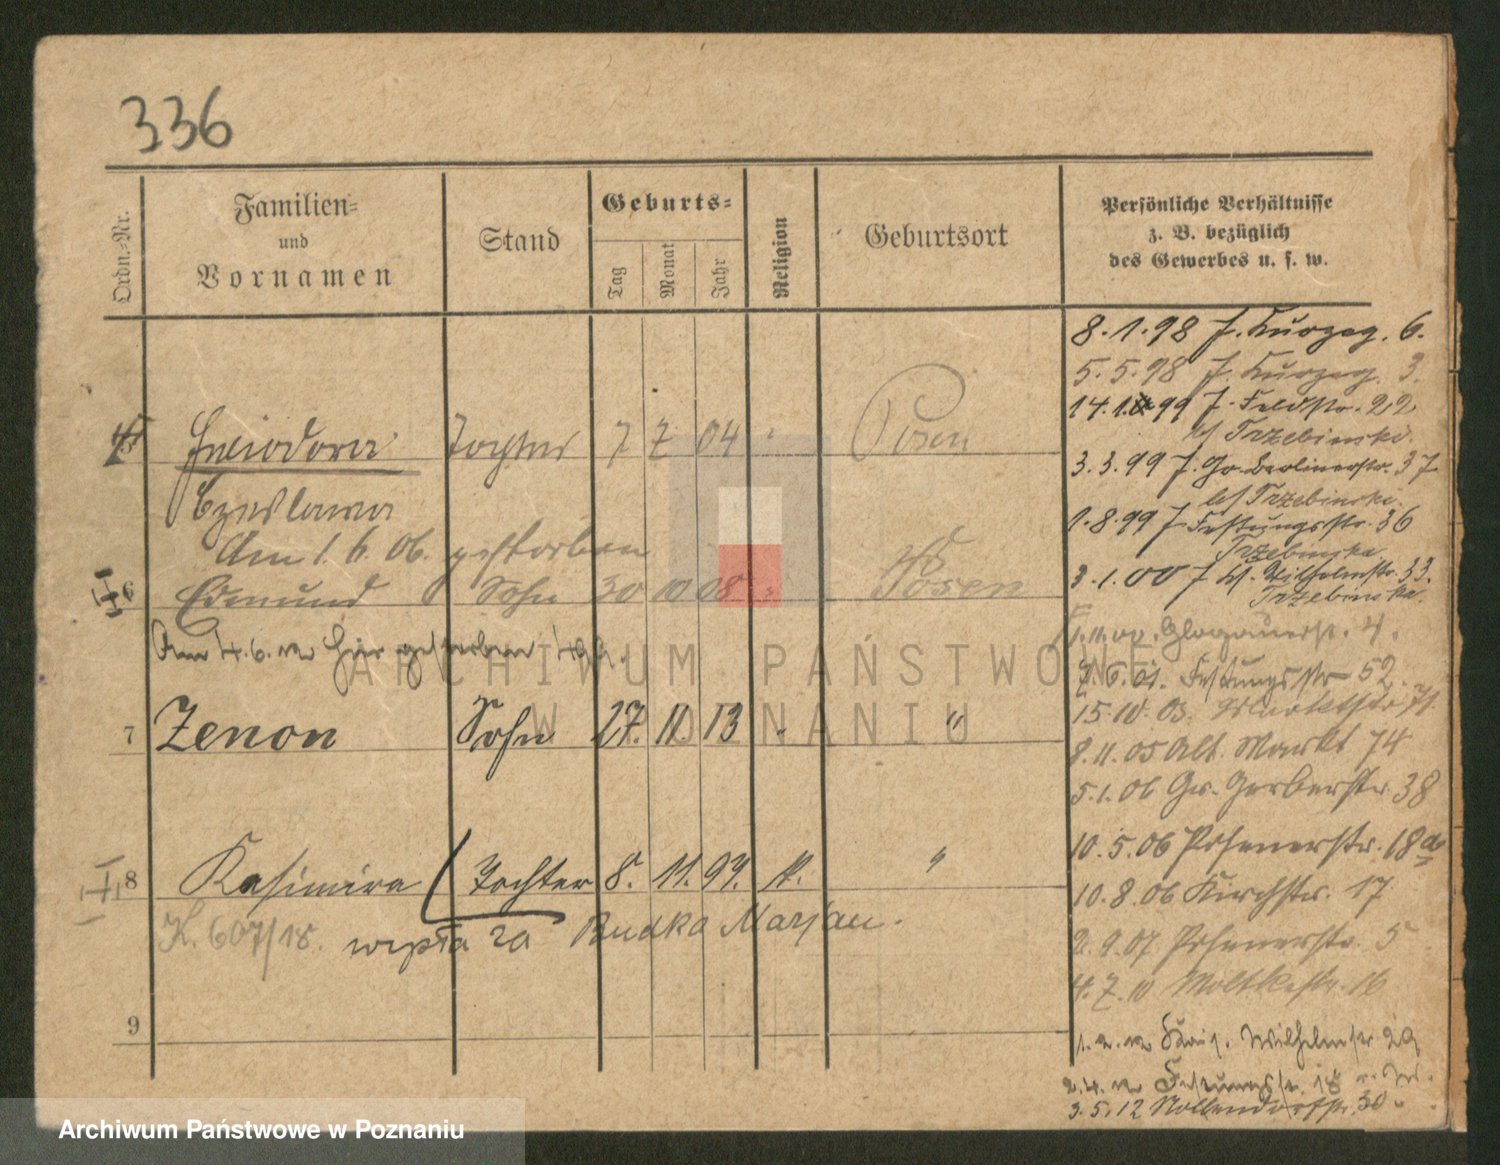 336
Ordn.-Nr.
Familien-
und
Vornamen
Stand
Geburts-
Tag
Monat
Jahr
Religion
Geburtsort
Persönliche Verhältnisse
z. B. bezüglich
des Gewerbes u. s. w.
8.1.98 6.
5.5.98 3.
14.1. 99 Feldstr. 22
bei Trzebinski.
3.3.99 Gr. Berlinerstr. 37
bei Trzebinska.
1.8.99 Festungsstr. 36
Trzebinska
3.1.00 bei Wilhelmstr. 33.
Trzebinska.
Glogauerstr. 4.
7.6.01. Festungsstr 52.
15.10.03. 71
8.11.05 Alt. Markt 74
5.1.06 Gr. Gerberstr. 38
10.5.06 Posenerstr. 18a
10.8.06 Kirchstr. 17
2.9.07 Posenerstr. 5
4.7.10 Moltkestr. 16
Wilhelmstr 29
18
3.5.12 Nollendorfstr. 30
5 Tochter 7 7 04 " Posen
Czeslawa
Am 1.6.06. gestorben
6 Edmund Sohn 30 10 08 " Posen
Am 4.6. hier gestorben
7 Zenon Sohn 27. 11 13 " "
8 Kasimira Tochter 8. 11. 99. k. "
K. 607/18. wpła za Budka Marjan.
9
ARCHIWUM PAŃSTWOWE
W POZNANIU
Archiwum Państwowe w Poznaniu